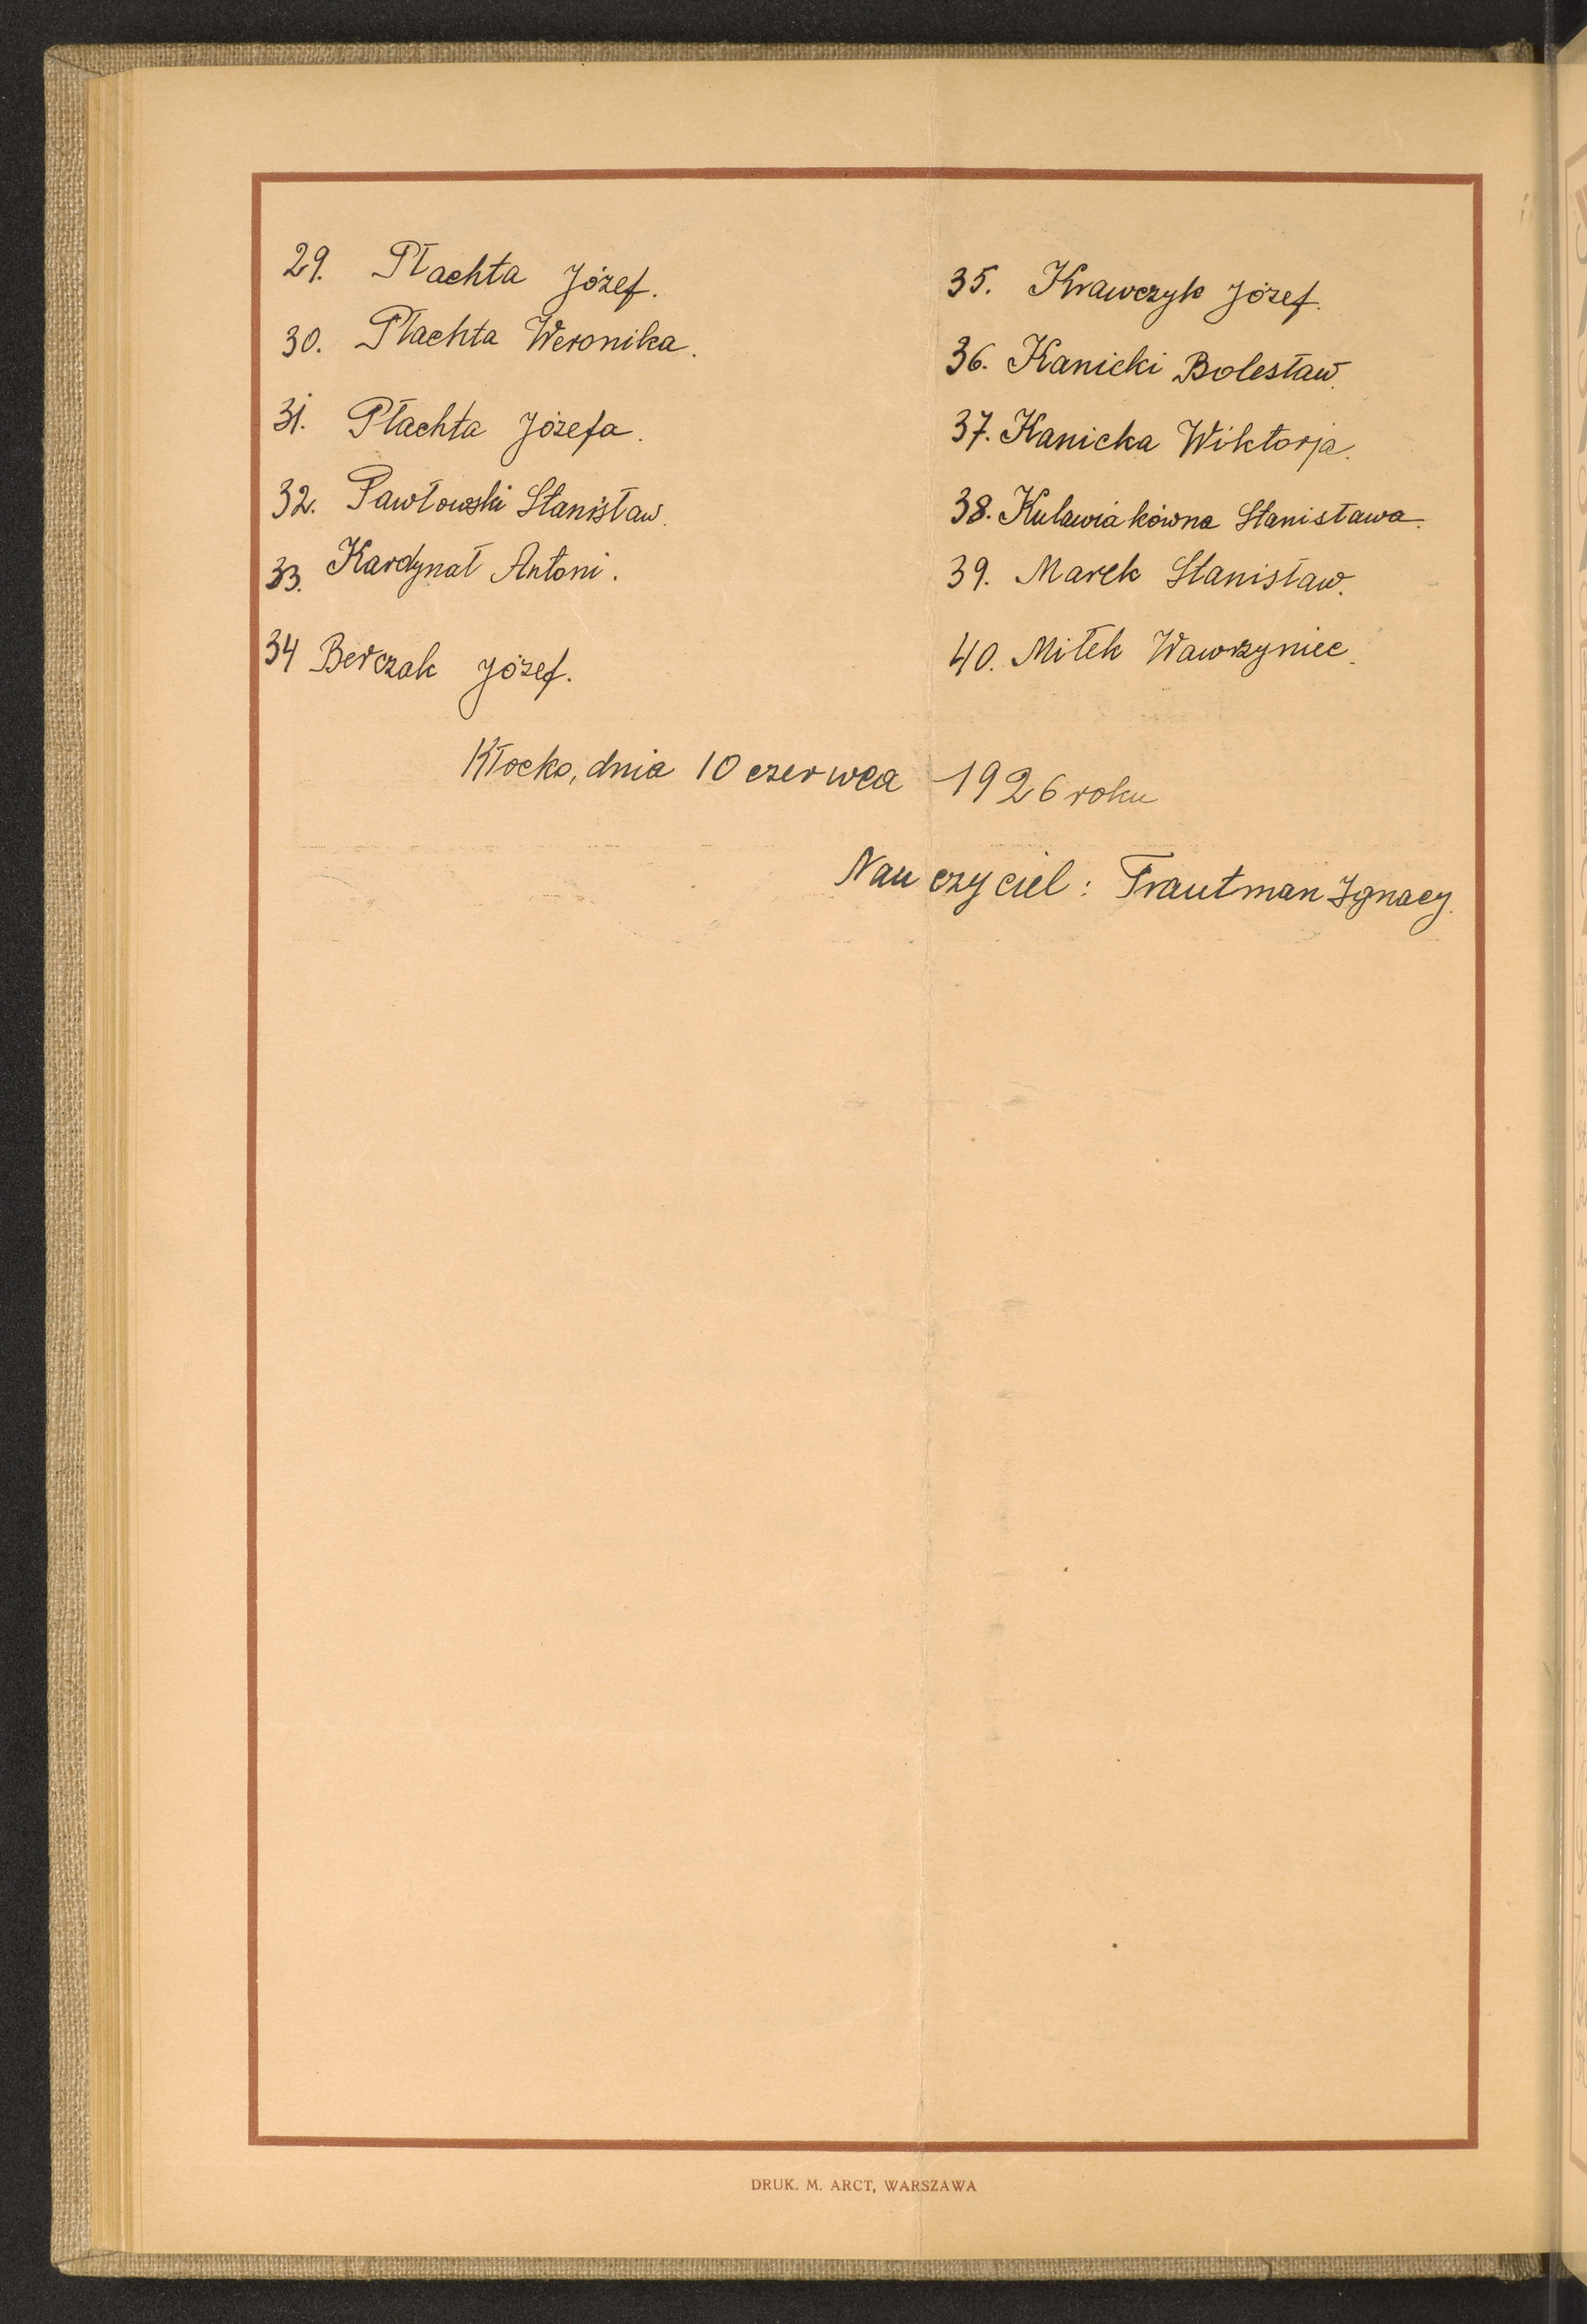 29. Płachta Józef.
30. Płachta Weronika.
31. Płachta Józefa.
32. Pawłowski Stanisław.
33. Kardynał Antoni.
34 Berczak Józef.
35. Krawczyk Józef.
36. Kanicki Bolesław.
37. Kanicka Wiktorja.
38. Kulawiakówna Stanisława.
39. Marek Stanisław.
40. Miłek Wawrzyniec.
Kłocko, dnia 10 czerwca 1926 roku
Nauczyciel: Trautman Ignacy.
DRUK. M. ARCT, WARSZAWA